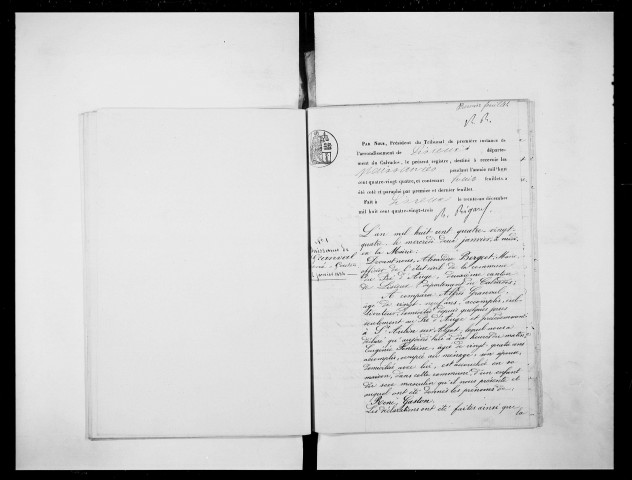 Premier feuillet
R. R.
Par Nous, Président du Tribunal de première instance de
l'arrondissement de Lisieux, départe-
ment du Calvados, le présent registre, destiné à recevoir les
Naissances pendant l'année mil huit
cent quatre-vingt quatre, et contenant trois feuillets a
été coté et paraphé par premier et dernier feuillet.
Fait à Lisieux le trente un décembre
mil huit cent quatre-vingt-trois
N° 1
Naissance de
René Gaston
2 janvier 1884
L'an mil huit cent quatre-vingt
quatre le mercredi deux janvier, à midi,
en la Mairie.
Devant nous, Alexandre Bergeot, Maire
officier de l'état civil de la commune
du Pré d'Auge, deuxième canton
de Lisieux, département du Calvados,
A comparu Alfred
âgé de vingt neuf ans, accomplis, cul-
tivateur, domicilié depuis quelques jours
seulement au Pré d'Auge et précédemment
à St Aubin sur Algot, lequel nous a
déclaré qu'aujourd'hui à dix heures du matin,
Eugénie Fontaine, âgée de vingt quatre ans
accomplis, occupée au ménage, son épouse,
domiciliée avec lui, est accouchée en sa
maison, dans cette commune d'un enfant
du sexe masculin qu'il nous présente et
auquel ont été donnés les prénoms de
René, Gaston.
Les déclarations ont été faites ainsi que